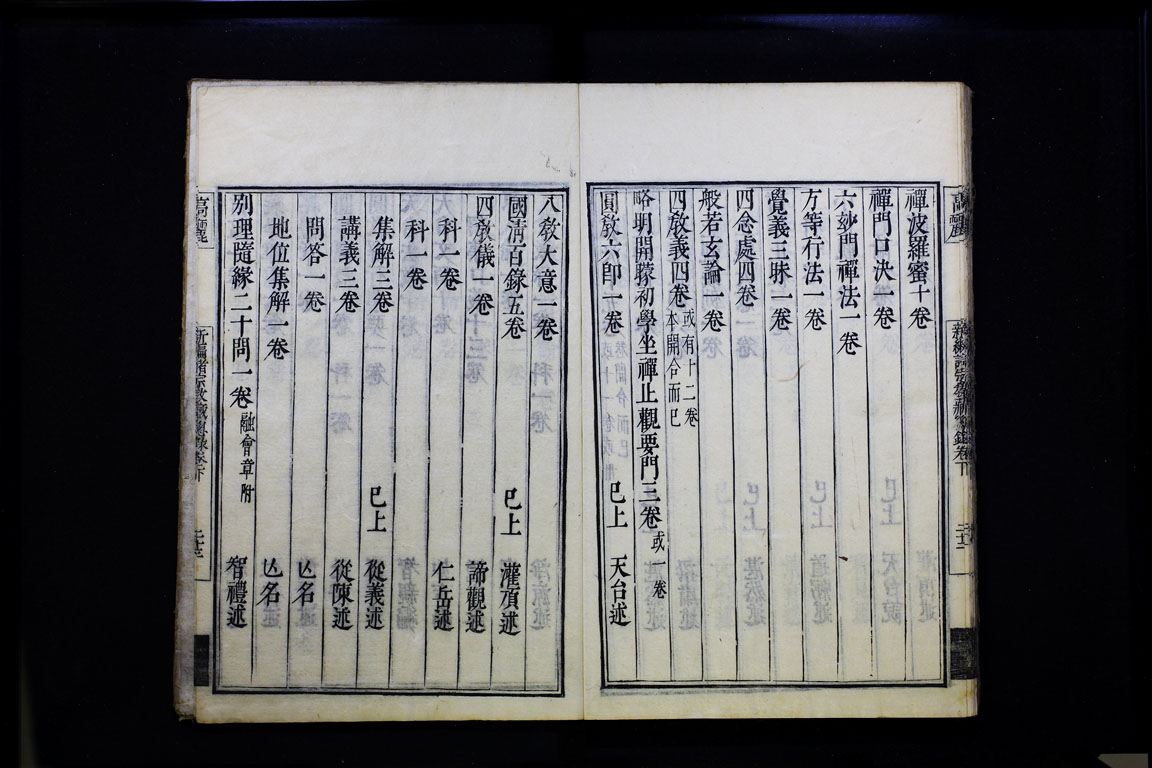 禪波羅蜜十卷
禪門口決一卷
六玅門禪法一卷
方等行法一卷
覺義三昧一卷
四念處四卷
般若玄論一卷
四敎義四卷 或有十二卷 本開合而已
略明開矇初學坐禪止觀要門三卷 或一卷
圓敎六即一卷 已上 天台述
八敎大意一卷
國淸百錄五卷 已上 灌頂述
四敎儀一卷 諦觀述
科一卷 仁岳述
科一卷
集解三卷 已上 從義述
講義三卷 從陳述
問答一卷 亾名
地位集解一卷 亾名
別理隨緣二十問一卷 融會章附 智禮述
高麗
新編諸宗敎藏總錄卷下